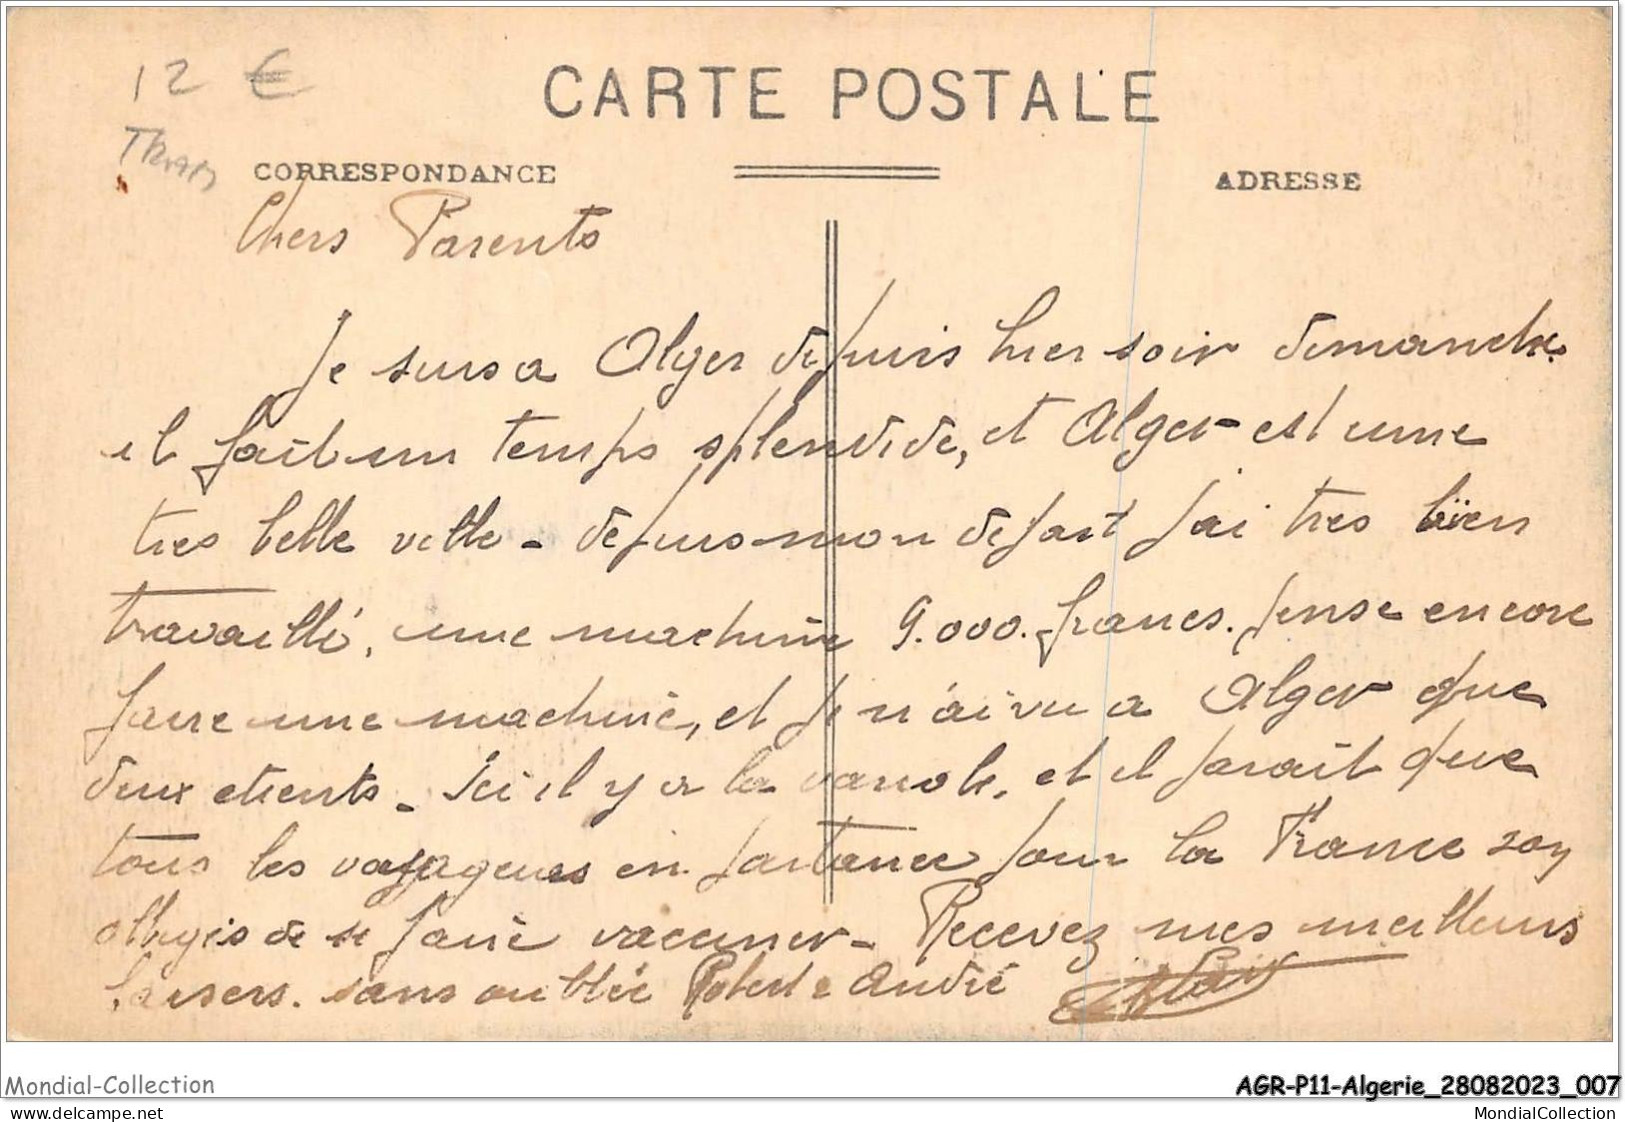 12 €
CARTE POSTALE
CORRESPONDANCE
ADRESSE
Chers Parents
Je suis a Alger depuis hier soir dimanche.
il fait un temps splendide, et Alger est une
tres belle ville - depuis mon depart j'ai tres bien
travaillé, une machine 9.000. francs. pense encore
faire une machine, et je n'ai vu a Alger que
deux clients - Ici il y a la variole, et il parait que
tous les voyageurs en partance pour la France
obligés de se faire vacciner - Recevez mes meilleurs
baisers. sans oublié Robert e André
Mondial-Collection
AGR-P11-Algerie_28082023_007
www.delcampe.net
MondialCollection